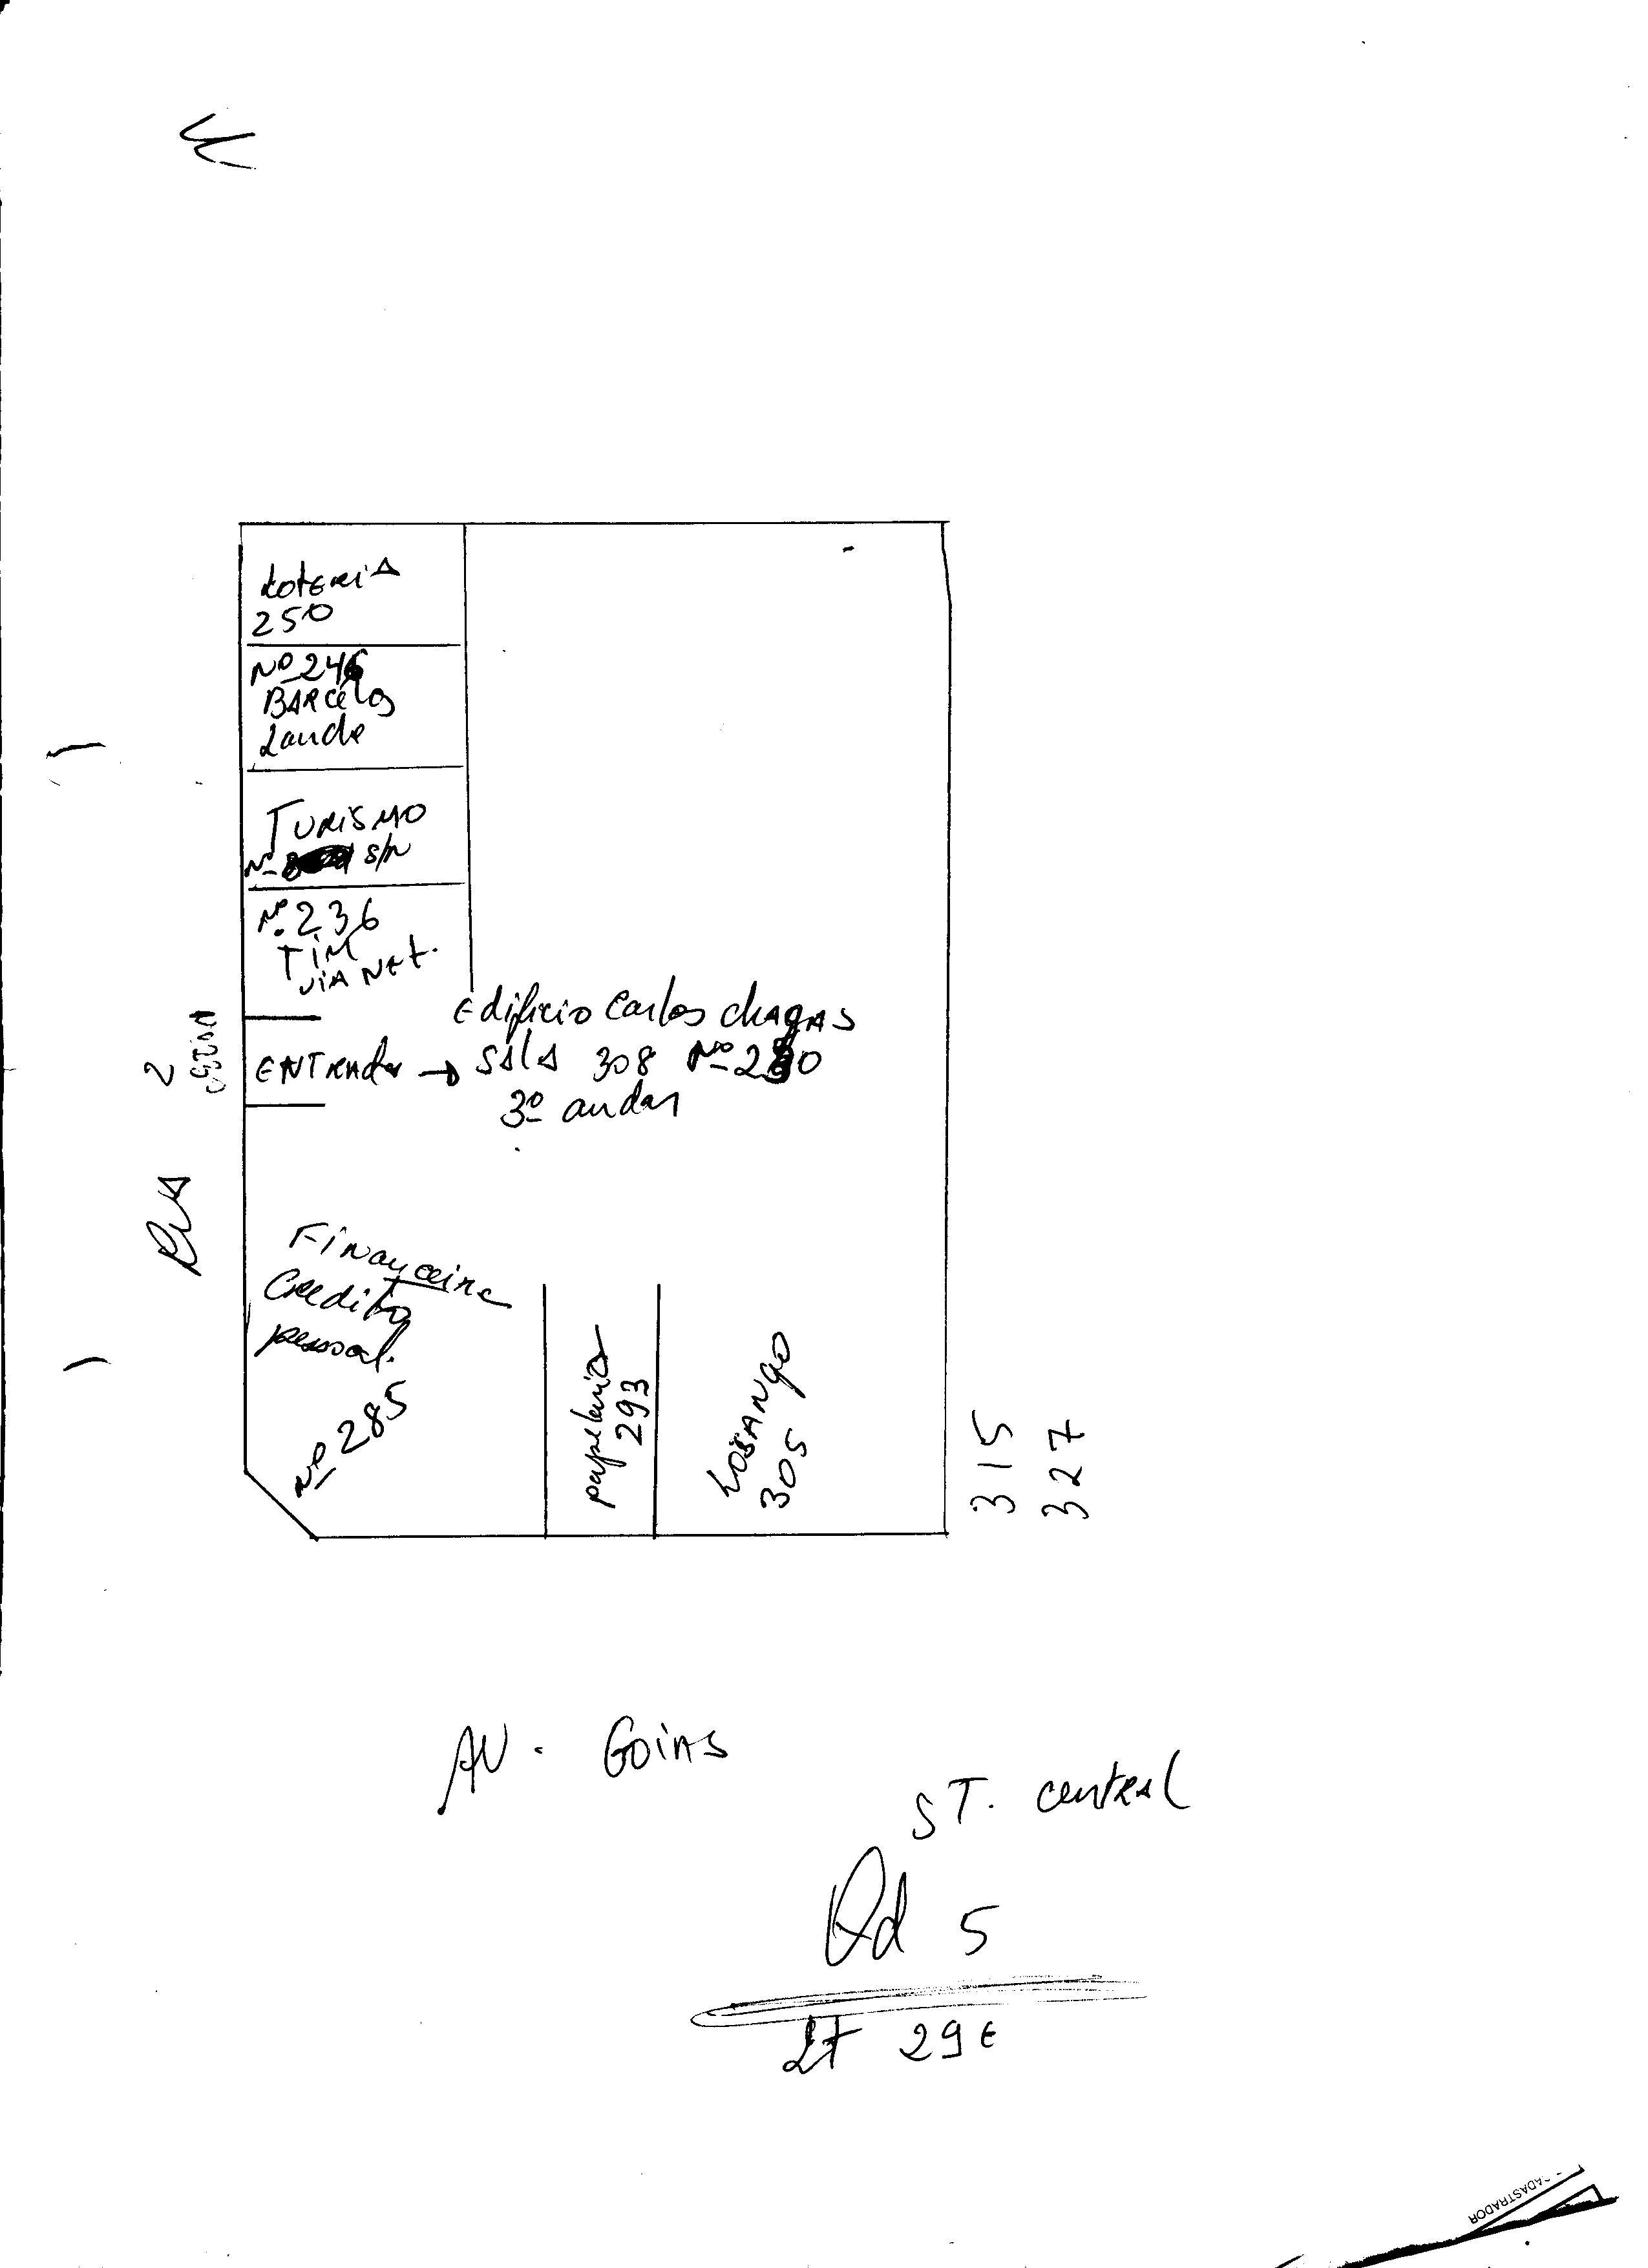 Loteria
250
Nº 246
BARCelos
Lanche
TURISMO
Nº s/n
Nº 236
TIM
VIA Net.
Edificio Carlos chagas
ENTRada → SALA 308 Nº 230
3º andar
RUA 2
Financeira
Credito
pessoal.
Nº 285
papelaria
293
LOSANgo
305
315
327
AV. Goias
ST. central
Qd 5
Lt 29 E
CADASTRADOR